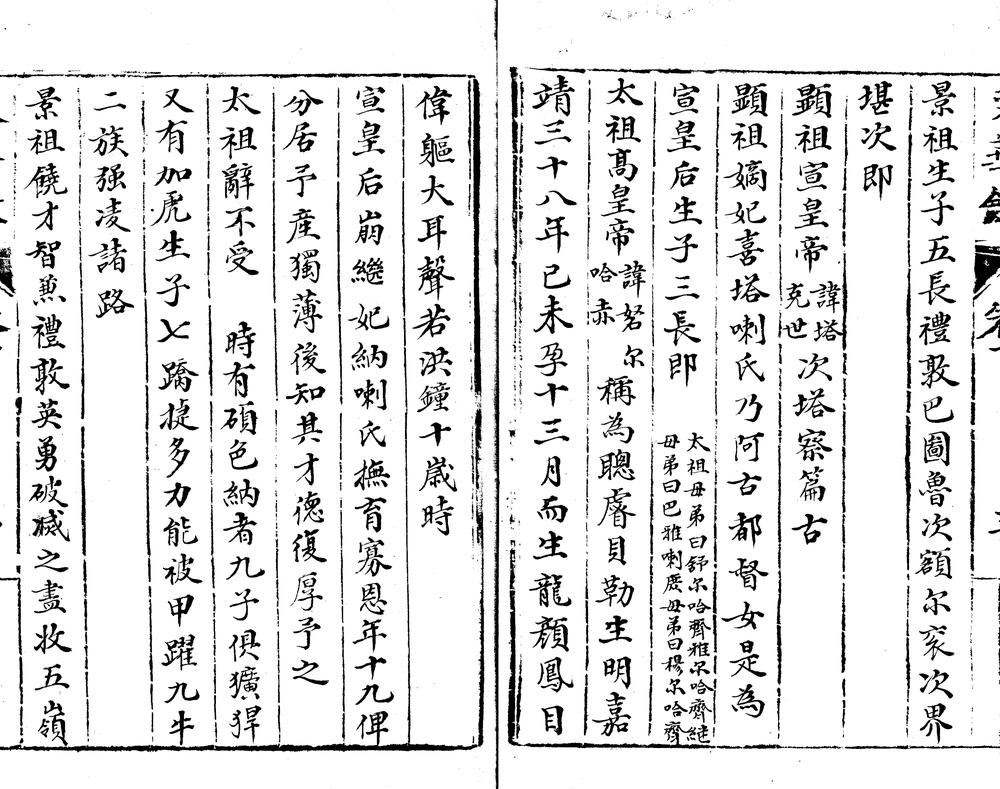 景祖生子五長禮敦巴圖魯次額尔衮次界
堪次即
顯祖宣皇帝諱塔克世次塔察篇古
顯祖嫡妃喜塔喇氏乃阿古都督女是為
宣皇后生子三長即
太祖母弟曰舒尔哈齊雅尔哈齊継
母弟曰巴雅喇庶母弟曰穆尔哈齊
太祖髙皇帝諱弩尔哈赤稱為聰睿貝勒生明嘉
靖三十八年己未孕十三月而生龍顏鳳目
偉軀大耳聲若洪鐘十歲時
宣皇后崩繼妃納喇氏撫育寡恩年十九俾
分居予産獨薄後知其才德復厚予之
太祖辭不受 時有碩色納者九子俱獷猂
又有加虎生子七蹻捷多力能被甲躍九牛
二族强凌諸路
景祖饒才智兼禮敦英勇破滅之盡收五嶺